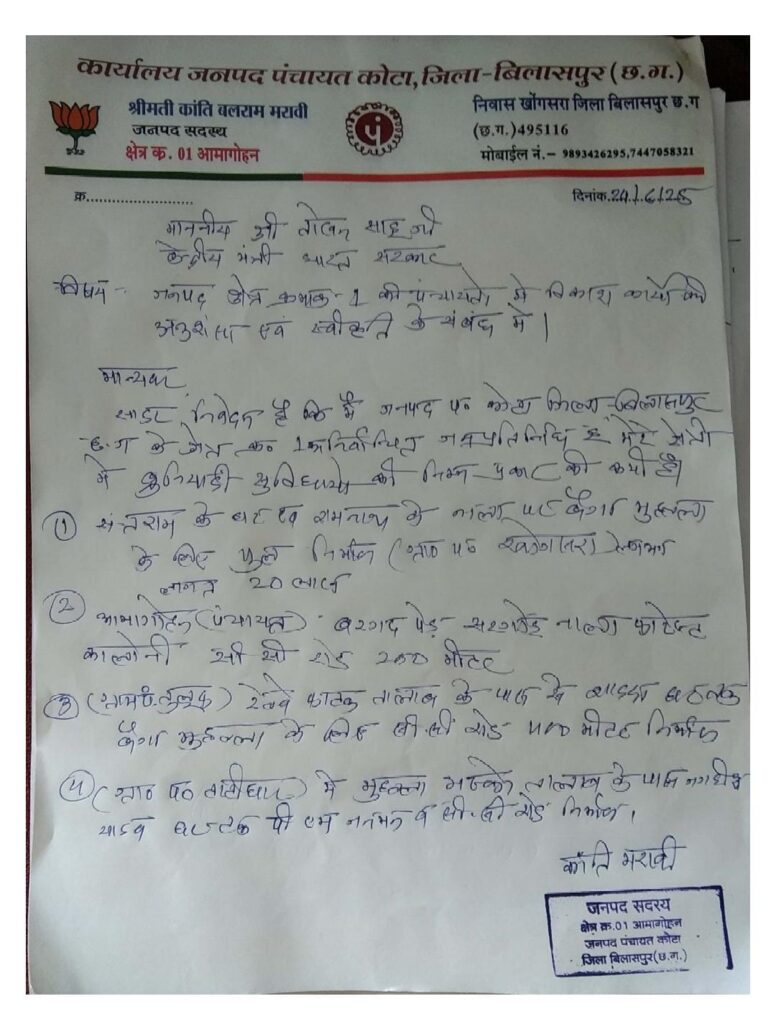 कार्यालय जनपद पंचायत कोटा, जिला-बिलासपुर (छ.ग.)
श्रीमती कांति बलराम मरावी
जनपद सदस्य
क्षेत्र क्र. 01 आमागोहन
पं
निवास खोंगसरा जिला बिलासपुर छ.ग
(छ.ग.)495116
मोबाईल नं.- 9893426295,7447058321
क्र.
दिनांक. 24/6/25
माननीय श्री तोखन साहू जी
केन्द्रीय मंत्री भारत सरकार
विषय - जनपद क्षेत्र क्रमांक-1 की पंचायतो में विकाश कार्यो की
अनुशंसा एवं स्वीकृति के संबंध में।
मान्यवर
सादर निवेदन है कि मैं जनपद पं० कोटा जिला-बिलासपुर
छ.ग के क्षेत्र क्र० 1 जनप्रतिनिधि हूं मेरे क्षेत्र
में बुनियादी सुविधायो की निम्न प्रकार की कमी है।
(1) संतराम के घर रामनाथ के नाला पर बैगा मुहल्ला
के लिए पुल निर्माण (ग्राम पं०
लागत 20 लाख
(2) आमागोहन (पंचायत) बरगद पेड़ नाला फारेस्ट
कालोनी सी सी रोड 200 मीटर
(3) रेल्वे फाटक तालाब के पास से घर तक
बैगा मुहल्ला के लिए सी.सी रोड 400 मीटर निर्माण
(4) (ग्राम पं० तातीधार) में मुहल्ला तालाब के पास जगदीश
यादव घर तक पी एम जनमन से सी.सी रोड निर्माण।
कांति मरावी
जनपद सदस्य
क्षेत्र क्र.01 आमागोहन
जनपद पंचायत कोटा
जिला बिलासपुर(छ.ग.)